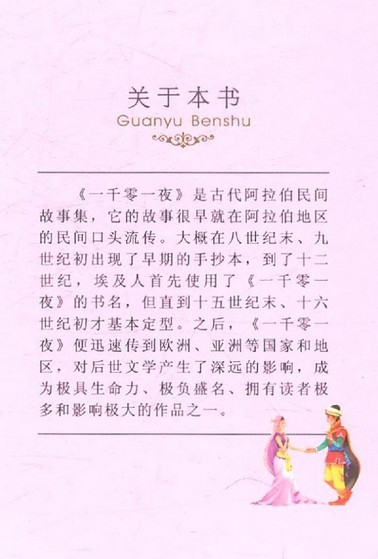 关于本书
Guanyu Benshu
《一千零一夜》是古代阿拉伯民间
故事集，它的故事很早就在阿拉伯地区
的民间口头流传。大概在八世纪末、九
世纪初出现了早期的手抄本，到了十二
世纪，埃及人首先使用了《一千零一
夜》的书名，但直到十五世纪末、十六
世纪初才基本定型。之后，《一千零一
夜》便迅速传到欧洲、亚洲等国家和地
区，对后世文学产生了深远的影响，成
为极具生命力、极负盛名、拥有读者极
多和影响极大的作品之一。